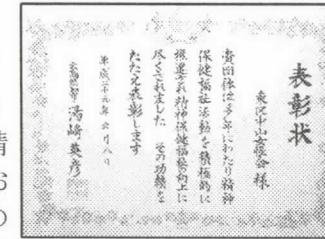 表彰状
様
貴団体は多年にわたり精神
保健福祉活動を積極的に
推進され精神保健福祉の向上に
尽くされました その功績を
たたえ表彰します
平成二十九年 六月八日
広島県知事 湯﨑英彦
情
お
の